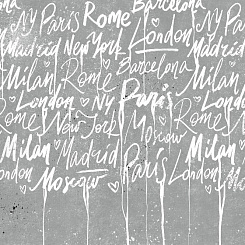 Barcelona
NY Paris Rome London
Madrid New York Madrid
Milan Rome Barcelona
London NY Paris London
Rome New York Moscow Rome
Milan Madrid Paris Milan
Moscow London